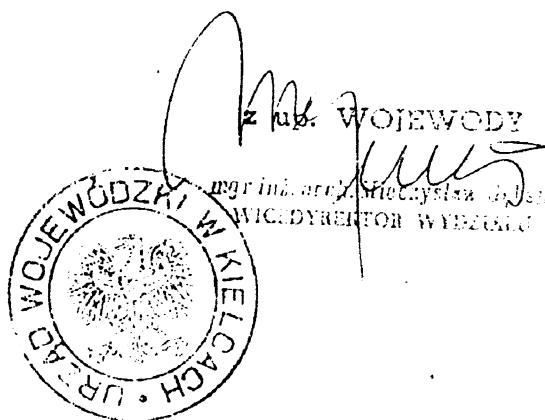 z up. WOJEWODY
mgr inż. arch. Mieczysław
WICEDYREKTOR WYDZIAŁU
URZĄD WOJEWÓDZKI W KIELCACH